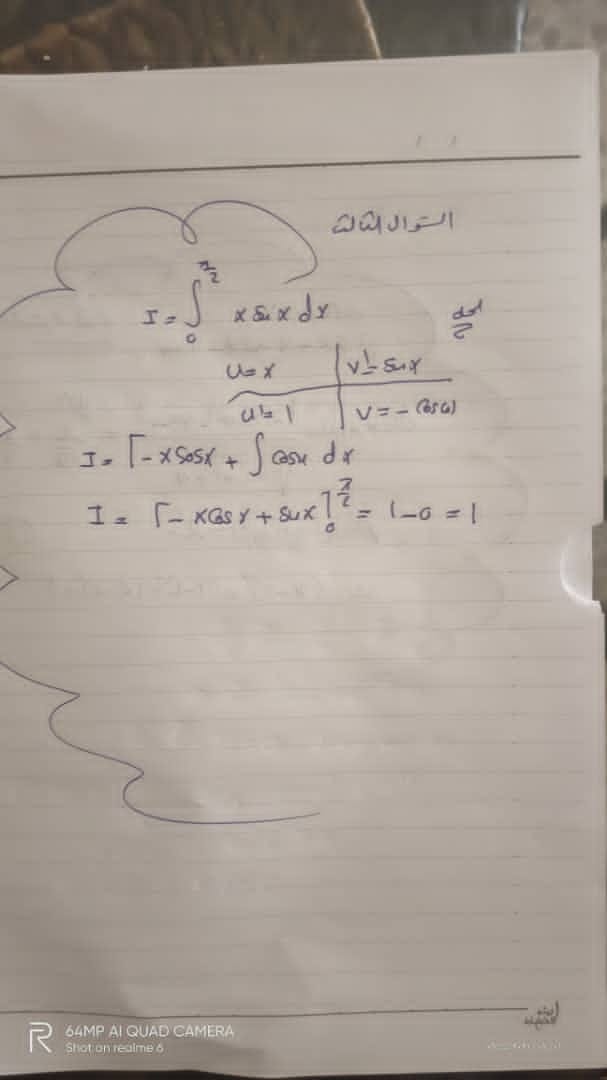 السؤال الثالث
I = ∫₀^(π/2) x sin x dx
الحل
u = x | v' = sin x
u' = 1 | v = - cos(x)
I = [- x cos x + ∫ cos x dx
I = [- x cos x + sin x]₀^(π/2) = 1 - 0 = 1
64MP AI QUAD CAMERA
Shot on realme 6